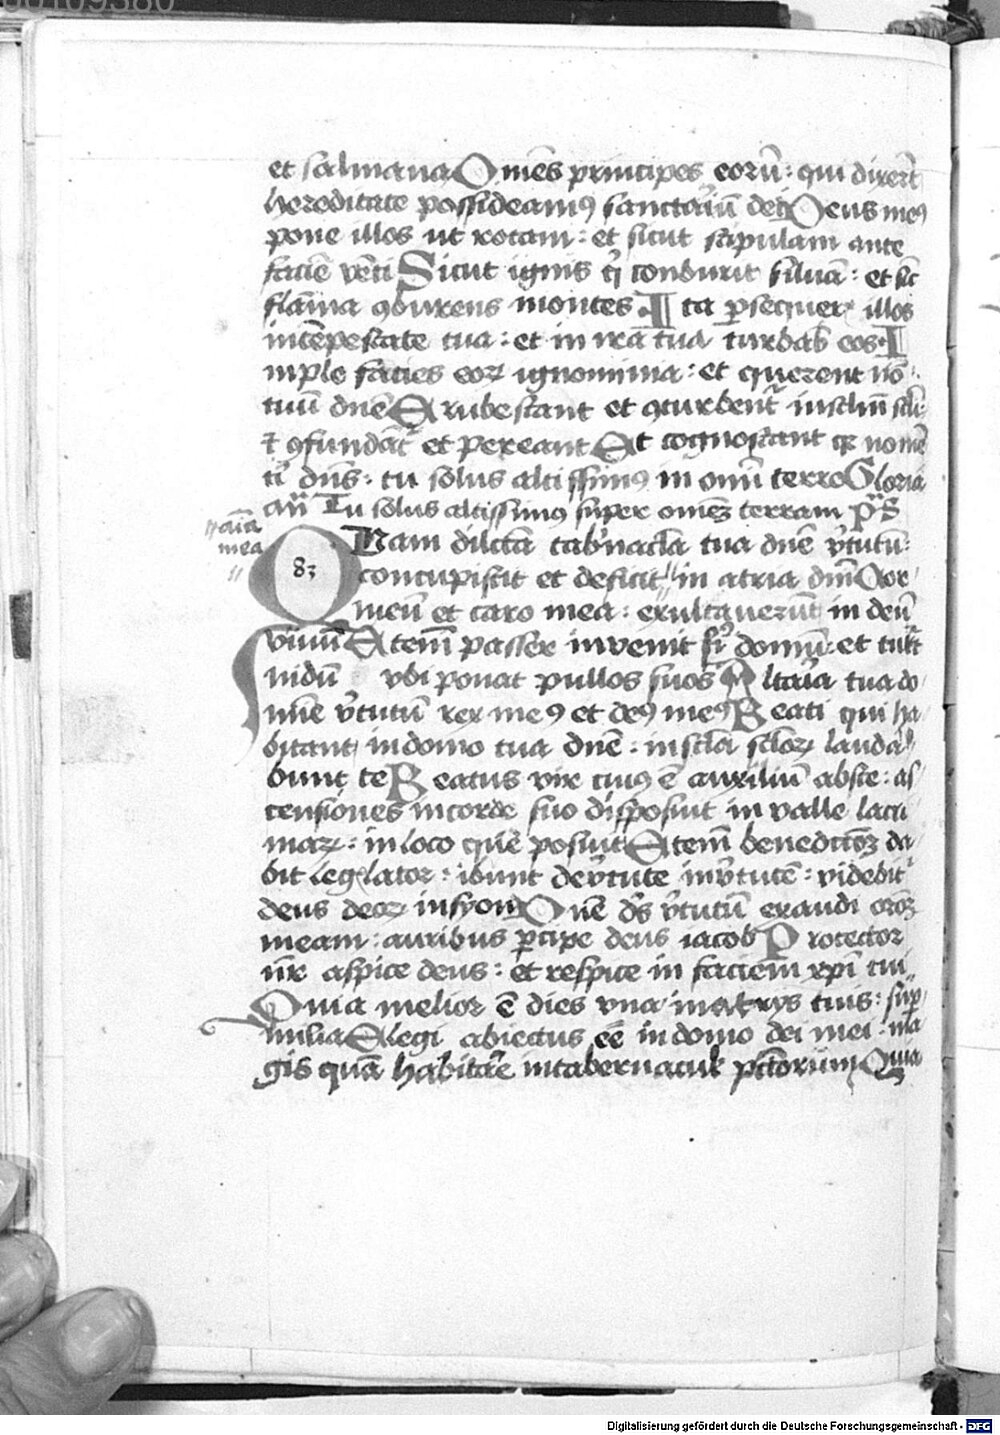 00109380
et salmana Om̄es principes eorū: qui dixerūt
hereditate possideamꝯ sanctuariū dei Deus meꝯ
pone illos ut rotam: et sicut stipulam ante
faciē vēti Sicut ignis q̄ conburit siluā: et sīc
flām̄a ꝯburens montes Ita ꝑsequerꝭ illos
in tēpestate tua: et in ira tua turbab̄ eos. I
mple facies eoꝝ ignominia: et querent nō
tuū dn̄e Erubescant et ꝯturbent᷑ in sclm̄ scli:
⁊ ꝯfundāt᷑ et pereant Et cognoscant qꝛ nomē
ti dn̄s: tu solus altissimꝯ in om̄i terra Gloria
an̄ Tu solus altissimꝯ super omēꝫ terram p̄s
aīa
mea
83
Quam dilcā tab'nacla tua dn̄e v̓tutū:
concupiscit et deficit in atria dn̄i Cor
meū et caro mea: exultauerūt in deū
viuū Etenī passer inuenit s̄ domū: et turt᷑
nidū vbi ponat pullos suos Altaria tua do
mīe v̓tutū rex meꝯ et deꝯ meꝯ Beati qui ha
bitant in domo tua dn̄e: in scla scloꝝ lauda
bunt te Beatus vir cuiꝯ ē auxiliū abs te: as
censiones in corde suo disposuit in valle lacri
maꝝ: in loco quē posuit Etenī benedictōꝫ da
bit legislator: ibunt de v̓tute in v̓tutē: videbit᷑
deus deoꝝ in syon Dn̄e ds̄ v̓tutū exaudi orōꝫ
meam: auribus ꝑcipe deus iacob Protector
nr̄ aspice deus: et respice in faciem xp̄i tui
Quia melior ē dies vna in atrys tuis: sup
milia Elegi abiectus eē in domo dei mei: ma
gis quā habitare in tabernacul' pctōrum Quia
Digitalisierung gefördert durch die Deutsche Forschungsgemeinschaft - DFG